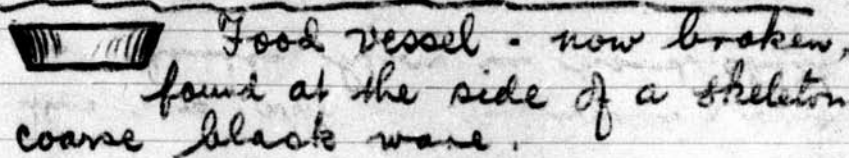 Food vessel - now broken,
found at the side of a skeleton
coarse black ware.